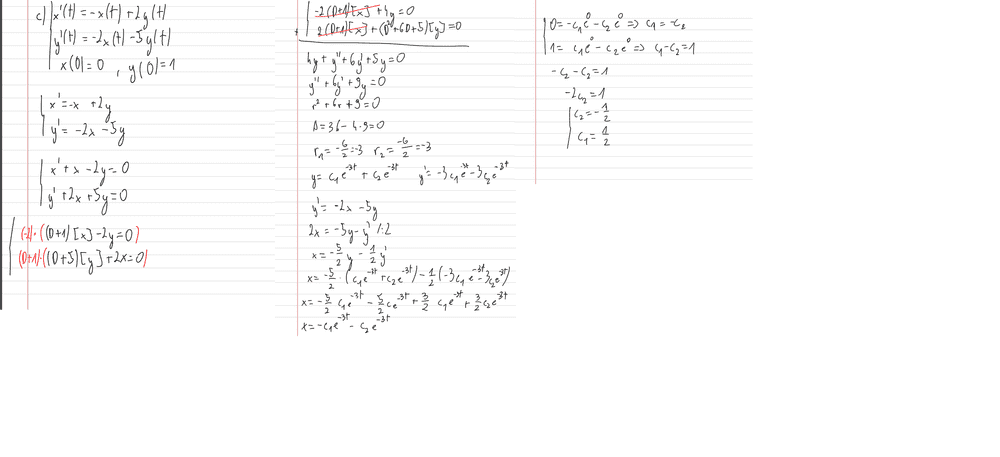 c) x'(t) = -x(t) + 2y(t)
y'(t) = -2x(t) - 5y(t)
x(0) = 0 , y(0) = 1
x' = -x + 2y
y' = -2x - 5y
x' + x - 2y = 0
y' + 2x + 5y = 0
(-2)·((D+1)[x] - 2y = 0)
(D+1)·((D+5)[y] + 2x = 0)
-2(D+1)[x] + 4y = 0
+ 2(D+1)[x] + (D²+6D+5)[y] = 0
4y + y'' + 6y' + 5y = 0
y'' + 6y' + 9y = 0
r² + 6r + 9 = 0
Δ = 36 - 4·9 = 0
r₁ = -6/2 = -3 r₂ = -6/2 = -3
y = c₁e^-3t + c₂e^-3t y' = -3c₁e^-3t - 3c₂e^-3t
y' = -2x - 5y
2x = -5y - y' /:2
x = -5/2 y - 1/2 y'
x = -5/2 · (c₁e^-3t + c₂e^-3t) - 1/2 (-3c₁e^-3t - 3c₂e^-3t)
x = -5/2 c₁e^-3t - 5/2 c₂e^-3t + 3/2 c₁e^-3t + 3/2 c₂e^-3t
x = -c₁e^-3t - c₂e^-3t
0 = -c₁e⁰ - c₂e⁰ => c₁ = -c₂
1 = c₁e⁰ - c₂e⁰ => c₁ - c₂ = 1
-c₂ - c₂ = 1
-2c₂ = 1
c₂ = -1/2
c₁ = 1/2